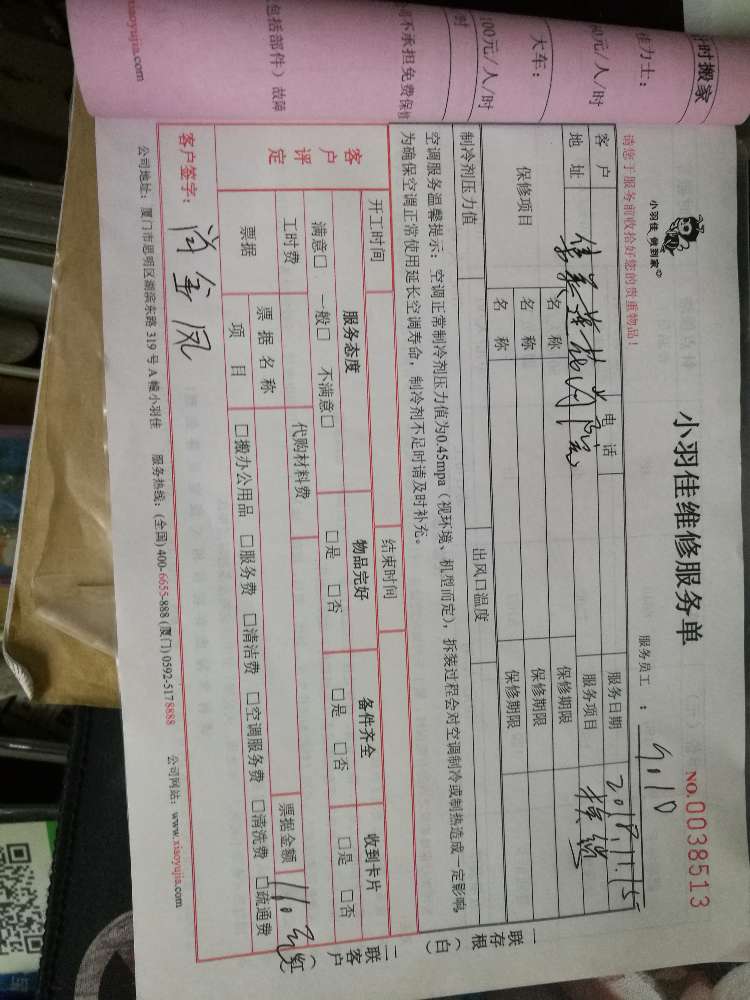 时搬家
60元/人/时
大车:
100元/人/时
时
司不承担免费保修
包括部件）故障
xiaoyujia.com
小羽佳 做到家
小羽佳维修服务单
NO.0038513
请您于服务前收拾好您的贵重物品！
服务员工 : 4010
客户
电话
服务日期 2018.11.15
地址
服务项目
保修项目
名称
保修期限
名称
保修期限
名称
保修期限
制冷剂压力值
出风口温度
空调服务温馨提示: 空调正常制冷剂压力值为0.45mpa（视环境、机型而定），拆装过程会对空调制冷或制热造成一定影响
为确保空调正常使用延长空调寿命，制冷剂不足时请及时补充。
开工时间
结束时间
客户评定
服务态度
物品完好
备件齐全
收到卡片
满意□ 一般□ 不满意□
□是 □否
□是 □否
□是 □否
工时费
代购材料费
票据
票据名称
票据金额 110元
项目
□搬办公用品 □服务费 □清洁费 □空调服务费 □清洗费 □疏通费
客户签字:
公司地址: 厦门市思明区湖滨东路 319 号 A 幢小羽佳 服务热线: (全国) 400-6655-888 (厦门) 0592-5178888 公司网站: www.xiaoyujia.com
一联存根（白）
二联客户（红）